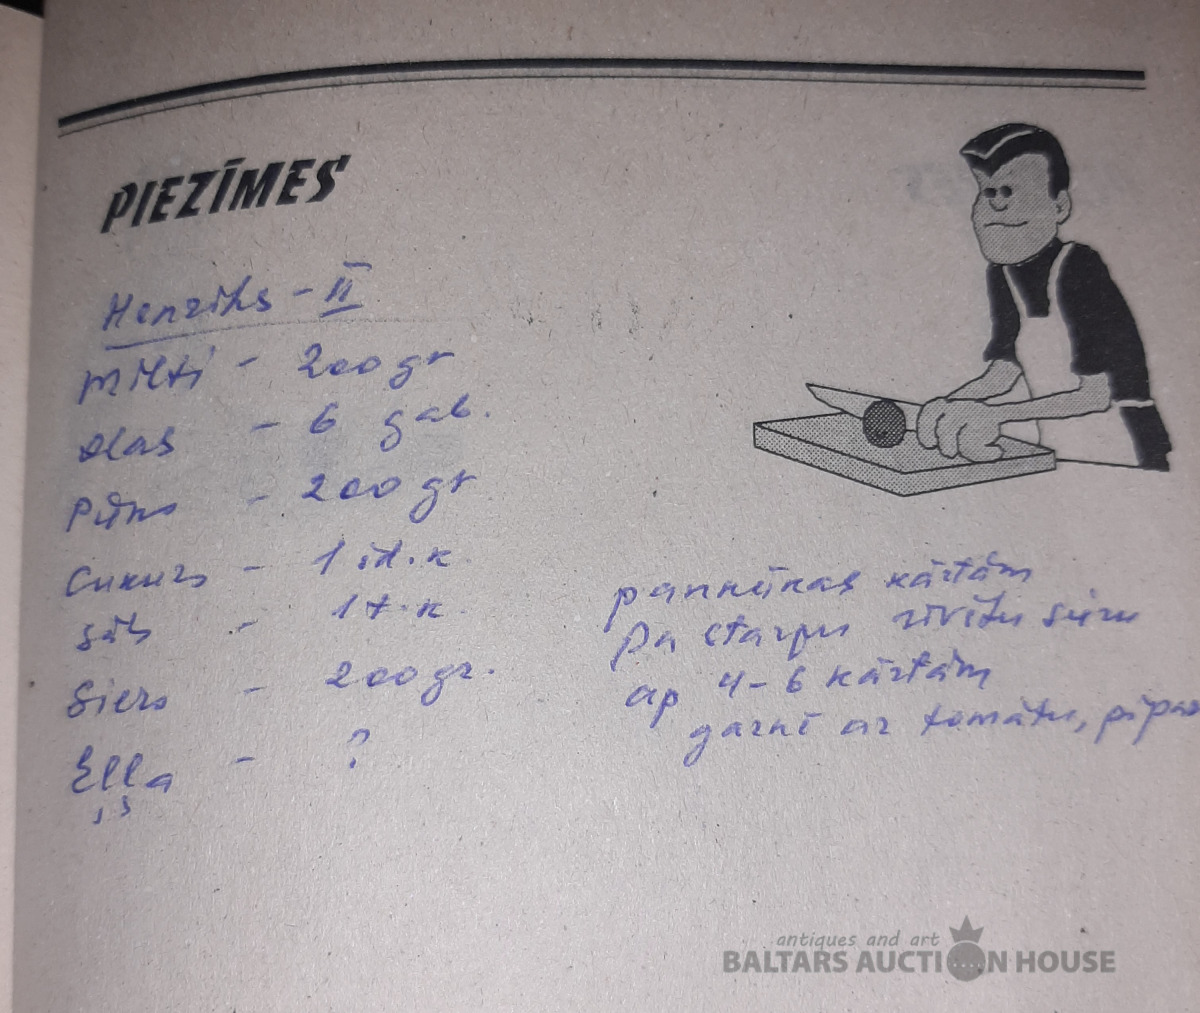 PIEZĪMES
Henriks - II
Milti - 200 gr
Olas - 6 gab.
Piens - 200 gr
Cukurs - 1 ēd.k
Sāls - 1 t.k
Siers - 200 gr.
Eļļa - ?
pannkūkas kārtām
pa starpu rīvētu sieru
ap 4-6 kārtām
garnē ar tomātu, pipar
antiques and art
BALTARS AUCTION HOUSE